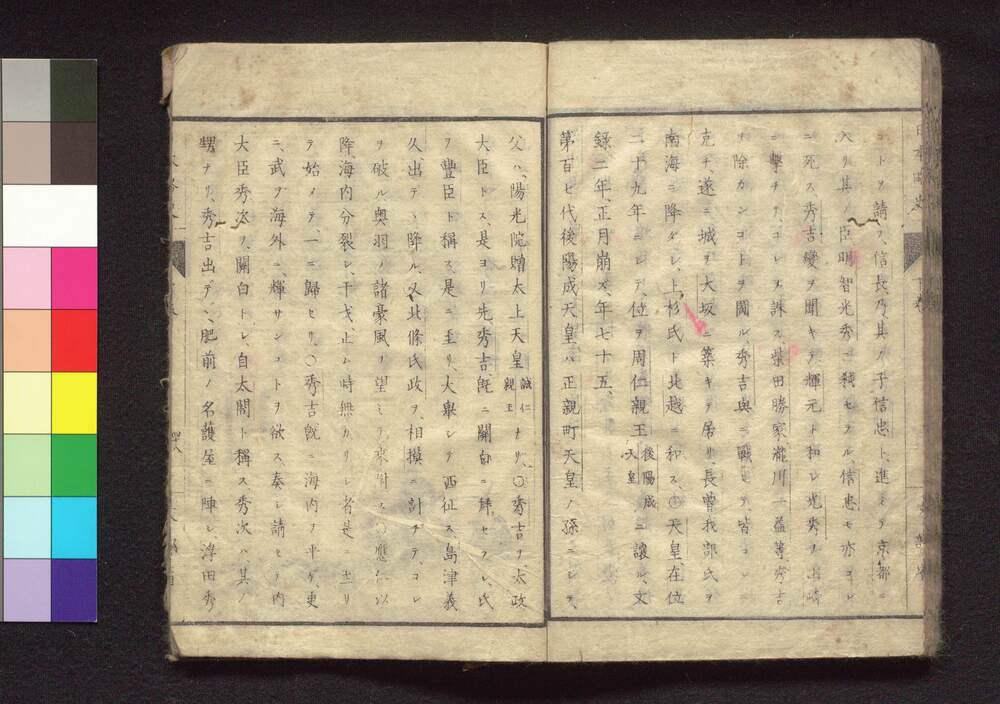 コトヲ請フ、信長乃其ノ子信忠ト、進ミテ京都ニ
入リ其ノ臣明智光秀ニ弑セラル信忠モ亦コレ
ニ死ス秀吉變ヲ聞キテ輝元ト和シ光秀ヲ山崎
ニ撃チテ、コレヲ誅ス、柴田勝家瀧川一益等、秀吉
ヲ除カンコトヲ圖ル秀吉與ニ戰ヒテ、皆コレニ
克チ、遂ニ城ヲ大坂ニ築キテ居リ長曾我部氏ヲ
南海ニ降ダシ、上杉氏ト北越ニ和ス、〇天皇、在位
二十九年ニシテ、位ヲ周仁親王後陽成天皇ニ讓ル、文
錄二年、正月崩ズ、年七十五、
第百七代後陽成天皇ハ正親町天皇ノ孫ニシテ、
父ハ、陽光院贈太上天皇誠仁親王ナリ、〇秀吉ヲ、太政
大臣トス、是ヨリ先秀吉旣ニ關白ニ拜セラレ、氏
ヲ豐臣ト稱ス、是ニ至リ、大擧シテ西征ス、島津義
久出デヽ降ル、又北條氏政ヲ、相摸ニ討チテ、コレ
ヲ破ル奥羽ノ諸豪風ヲ望ミテ來附ス〇應仁以
降、海内分裂シ、干戈、止ム時無カリシ者是ニ至リ
テ始メテ、一ニ歸セリ、〇秀吉旣ニ海内ヲ平ゲ、更
ニ、武ヲ海外ニ、輝サンコトヲ欲ス、奏シ請ヒテ内
大臣秀次ヲ、關白トシ、自太閤ト稱ス秀次ハ其ノ
甥ナリ、秀吉出デヽ、肥前ノ名護屋ニ陣シ浮田秀